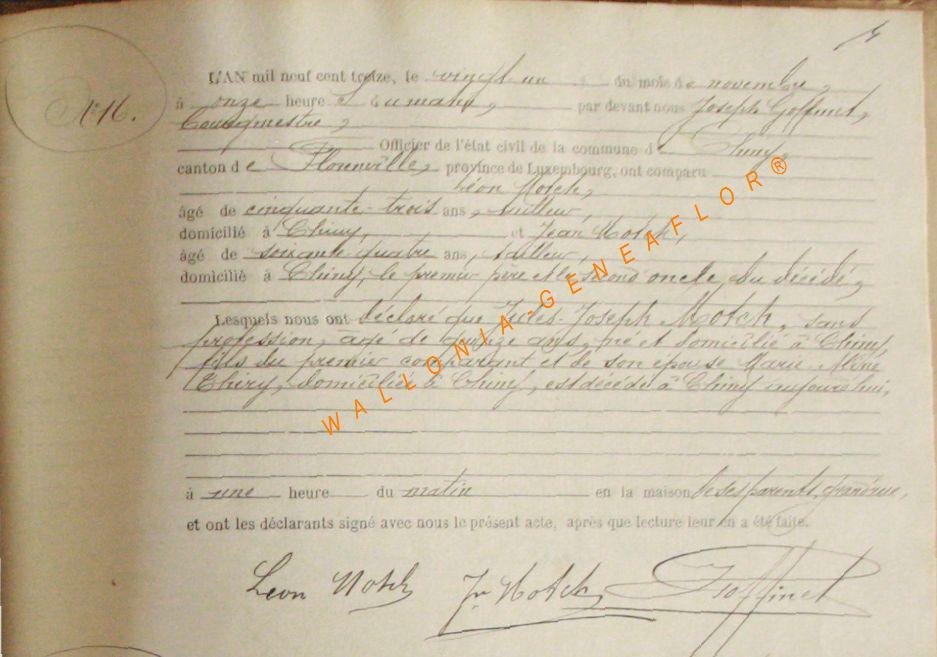 N° 16.
L'AN mil neuf cent treize, le vingt un du mois de novembre,
à onze heure s du matin, par devant nous Joseph Goffinet,
Bourgmestre,
Officier de l'état civil de la commune de Chiny,
canton de Florenville, province de Luxembourg, ont comparu
Léon Motch,
âgé de cinquante-trois ans, tailleur,
domicilié à Chiny, et Jean Motch,
âgé de soixante quatre ans, tailleur,
domicilié à Chiny, le premier père et le second oncle du décédé,
Lesquels nous ont déclaré que Jules-Joseph Motch, sans
profession, agé de ans, né et domicilié à Chiny,
fils du premier comparant et de son épouse Marie
Thiry, domiciliée à Chiny, est décédé à Chiny aujourd'hui,
à une heure du matin en la maison de ses parents, grand'rue,
et ont les déclarants signé avec nous le présent acte, après que lecture leur en a été faite.
Léon Motch Jn Motch J Goffinet
WALLONIA-GENEAFLOR®